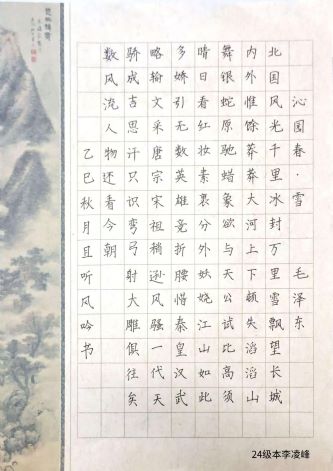 沁园春·雪 毛泽东
北国风光千里冰封万里雪飘望长城
内外惟馀莽莽大河上下顿失滔滔山
舞银蛇原驰蜡象欲与天公试比高须
晴日看红妆素裹分外妖娆江山如此
多娇引无数英雄竞折腰惜秦皇汉武
略输文采唐宗宋祖稍逊风骚一代天
骄成吉思汗只识弯弓射大雕俱往矣
数风流人物还看今朝
乙巳秋月且听风吟书
24级本李凌峰